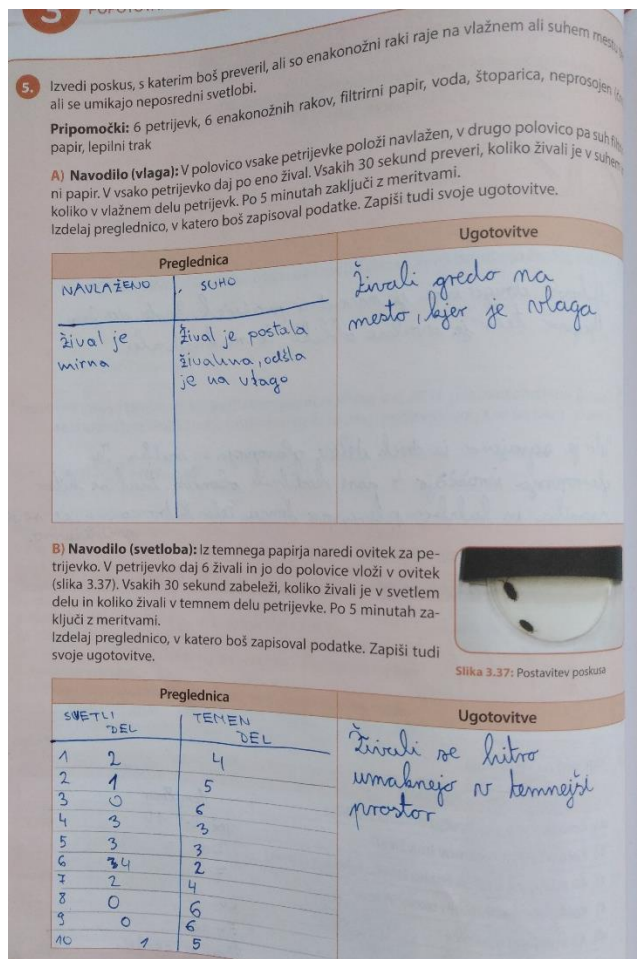 3
5. Izvedi poskus, s katerim boš preveril, ali so enakonožni raki raje na vlažnem ali suhem mestu
ali se umikajo neposredni svetlobi.
Pripomočki: 6 petrijevk, 6 enakonožnih rakov, filtrirni papir, voda, štoparica, neprosojen
papir, lepilni trak
A) Navodilo (vlaga): V polovico vsake petrijevke položi navlažen, v drugo polovico pa suh
ni papir. V vsako petrijevko daj po eno žival. Vsakih 30 sekund preveri, koliko živali je v suhem
koliko v vlažnem delu petrijevk. Po 5 minutah zaključi z meritvami.
Izdelaj preglednico, v katero boš zapisoval podatke. Zapiši tudi svoje ugotovitve.
Preglednica Ugotovitve
NAVLAŽENO SUHO
žival je
mirna
žival je postala
živahna, odšla
je na vlago
Živali gredo na
mesto, kjer je vlaga
B) Navodilo (svetloba): Iz temnega papirja naredi ovitek za pe-
trijevko. V petrijevko daj 6 živali in jo do polovice vloži v ovitek
(slika 3.37). Vsakih 30 sekund zabeleži, koliko živali je v svetlem
delu in koliko živali v temnem delu petrijevke. Po 5 minutah za-
ključi z meritvami.
Izdelaj preglednico, v katero boš zapisoval podatke. Zapiši tudi
svoje ugotovitve.
Slika 3.37: Postavitev poskusa
Preglednica Ugotovitve
SVETLI
DEL
TEMEN
DEL
1 2 4
2 1 5
3 0 6
4 3 3
5 3 3
6 4 2
7 2 4
8 0 6
9 0 6
10 1 5
Živali se hitro
umaknejo v temnejši
prostor